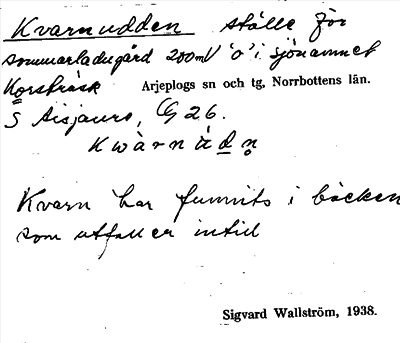 Kvarnudden ställe för
sommarladugård 200 m V 'o' i sjönamnet
Korsträsk Arjeplogs sn och tg, Norrbottens län.
S Aisjaure, G 26.
Kvarn har funnits i bäcken
som utfaller intill
Sigvard Wallström, 1938.